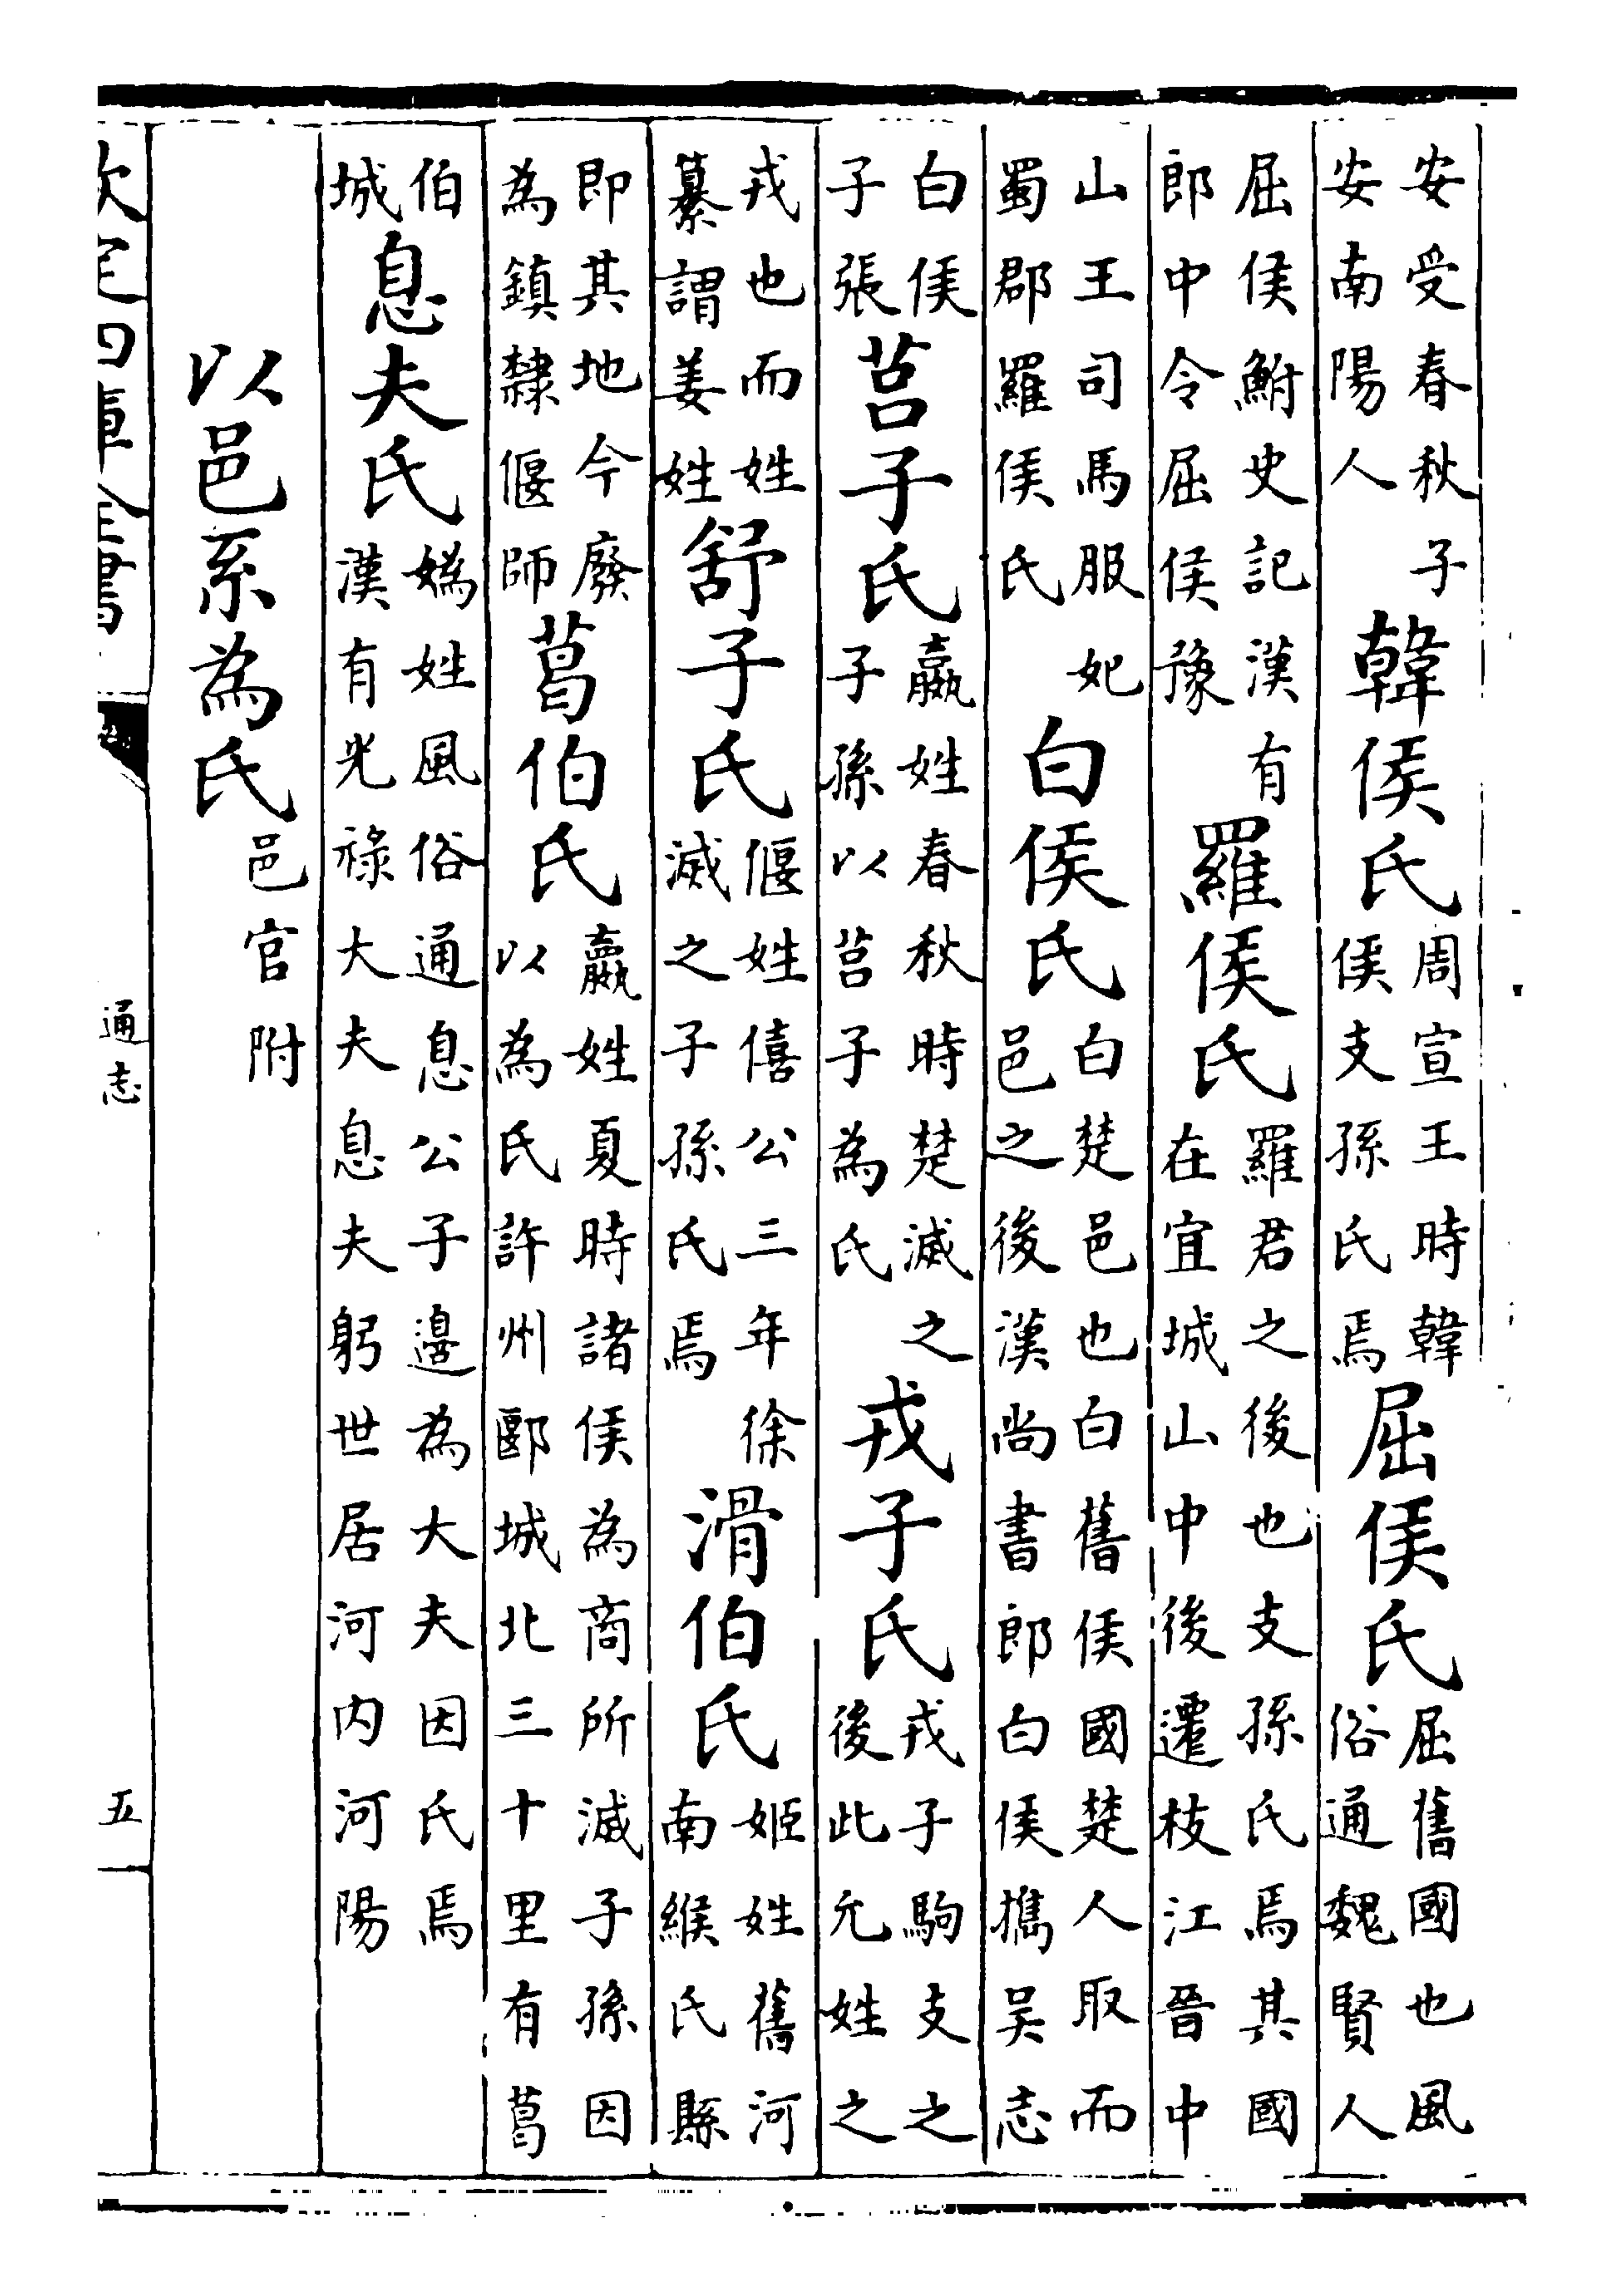 安受春秋子
安南陽人
韓侯氏
周宣王時韓
侯支孫氏焉
屈侯氏
屈舊國也風
俗通魏賢人
屈侯鮒史記漢有
郎中令屈侯豫
羅侯氏
羅君之後也支孫氏焉其國
在宜城山中後遷枝江晉中
山王司馬服妃
蜀郡羅侯氏
白侯氏
白楚邑也白舊侯國楚人取而
邑之後漢尚書郎白侯擕吴志
白侯
子張
莒子氏
嬴姓春秋時楚滅之
子孫以莒子為氏
戎子氏
戎子駒支之
後此允姓之
戎也而姓
纂謂姜姓
舒子氏
偃姓僖公三年徐
滅之子孫氏焉
滑伯氏
姬姓舊河
南緱氏縣
即其地今廢
為鎮隸偃師
葛伯氏
嬴姓夏時諸侯為商所滅子孫因
以為氏許州郾城北三十里有葛
伯
城
息夫氏
媯姓風俗通息公子邉為大夫因氏焉
漢有光祿大夫息夫躬世居河内河陽
以邑系為氏
邑官附
欽定四庫全書
通志
五